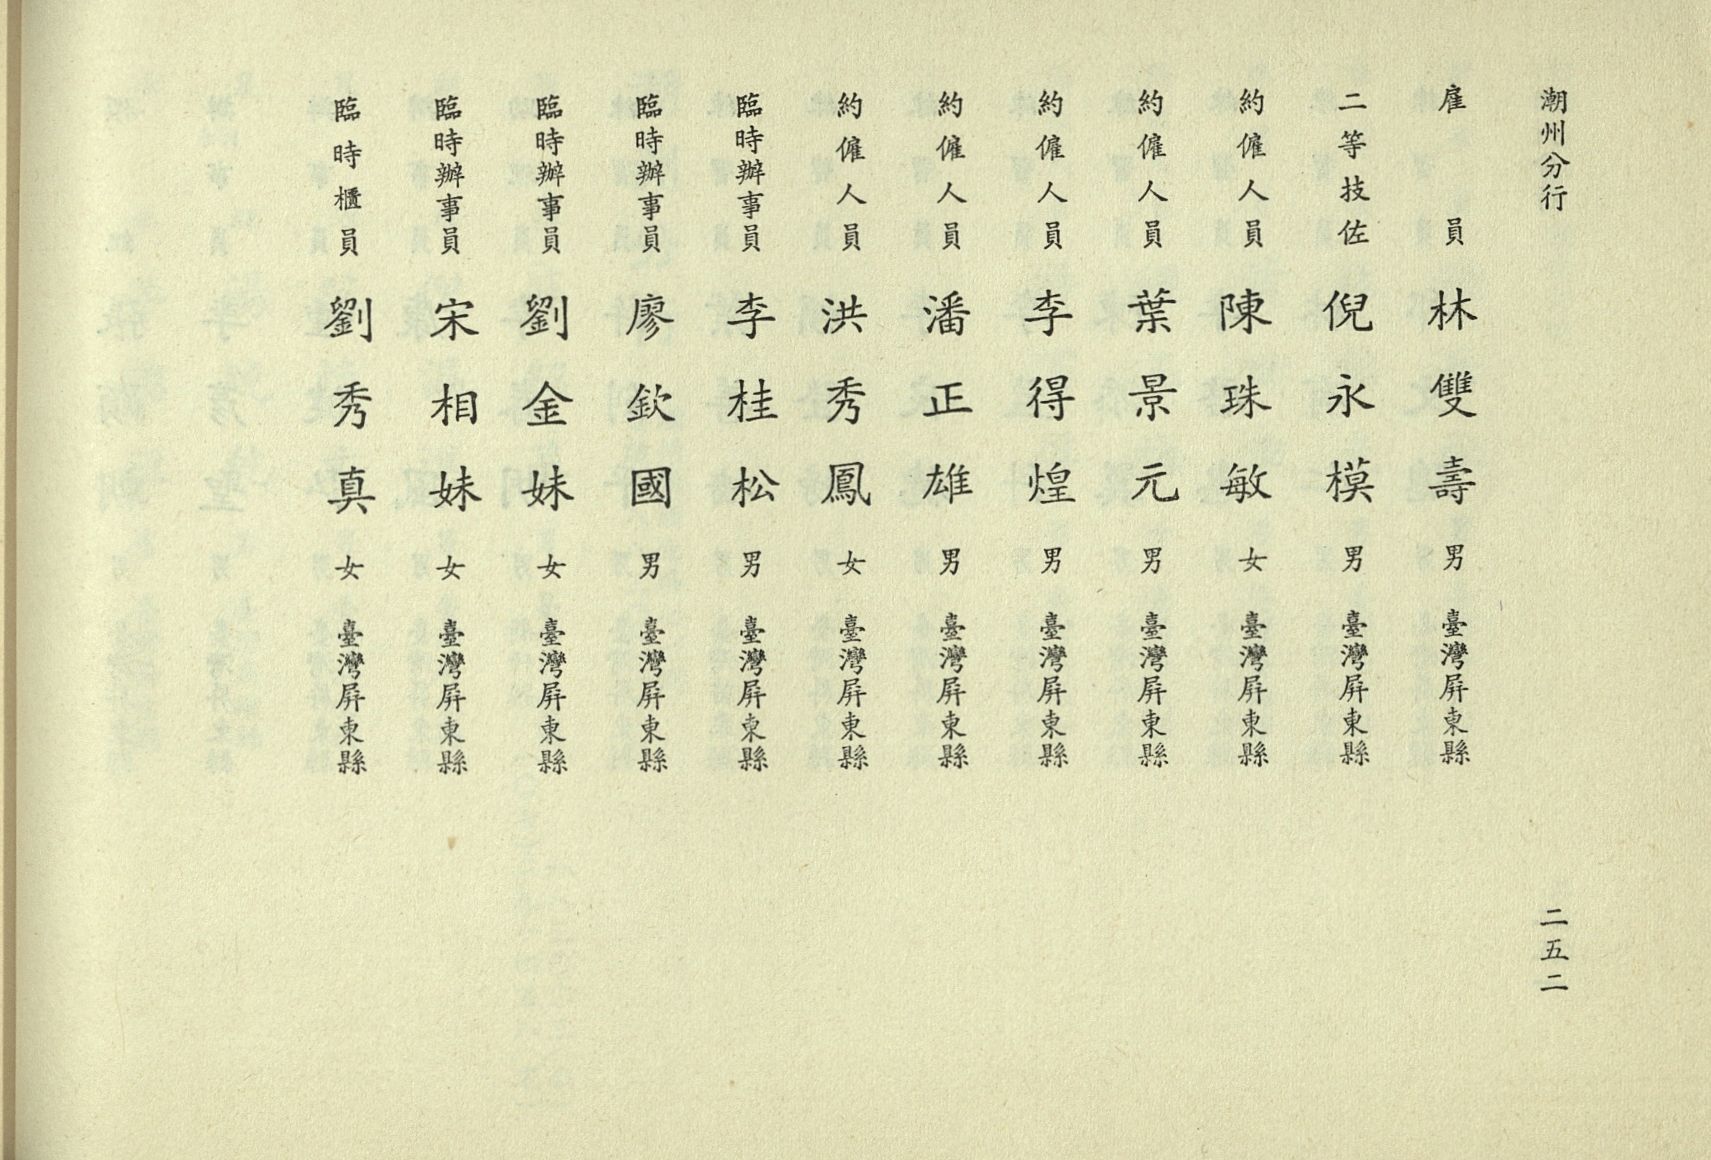 潮州分行　二五二
雇員　林雙壽　男　臺灣屛東縣
二等技佐　倪永模　男　臺灣屛東縣
約僱人員　陳珠敏　女　臺灣屛東縣
約僱人員　葉景元　男　臺灣屛東縣
約僱人員　李得煌　男　臺灣屛東縣
約僱人員　潘正雄　男　臺灣屛東縣
約僱人員　洪秀鳳　女　臺灣屛東縣
臨時辦事員　李桂松　男　臺灣屛東縣
臨時辦事員　廖欽國　男　臺灣屛東縣
臨時辦事員　劉金妹　女　臺灣屛東縣
臨時辦事員　宋相妹　女　臺灣屛東縣
臨時櫃員　劉秀真　女　臺灣屛東縣